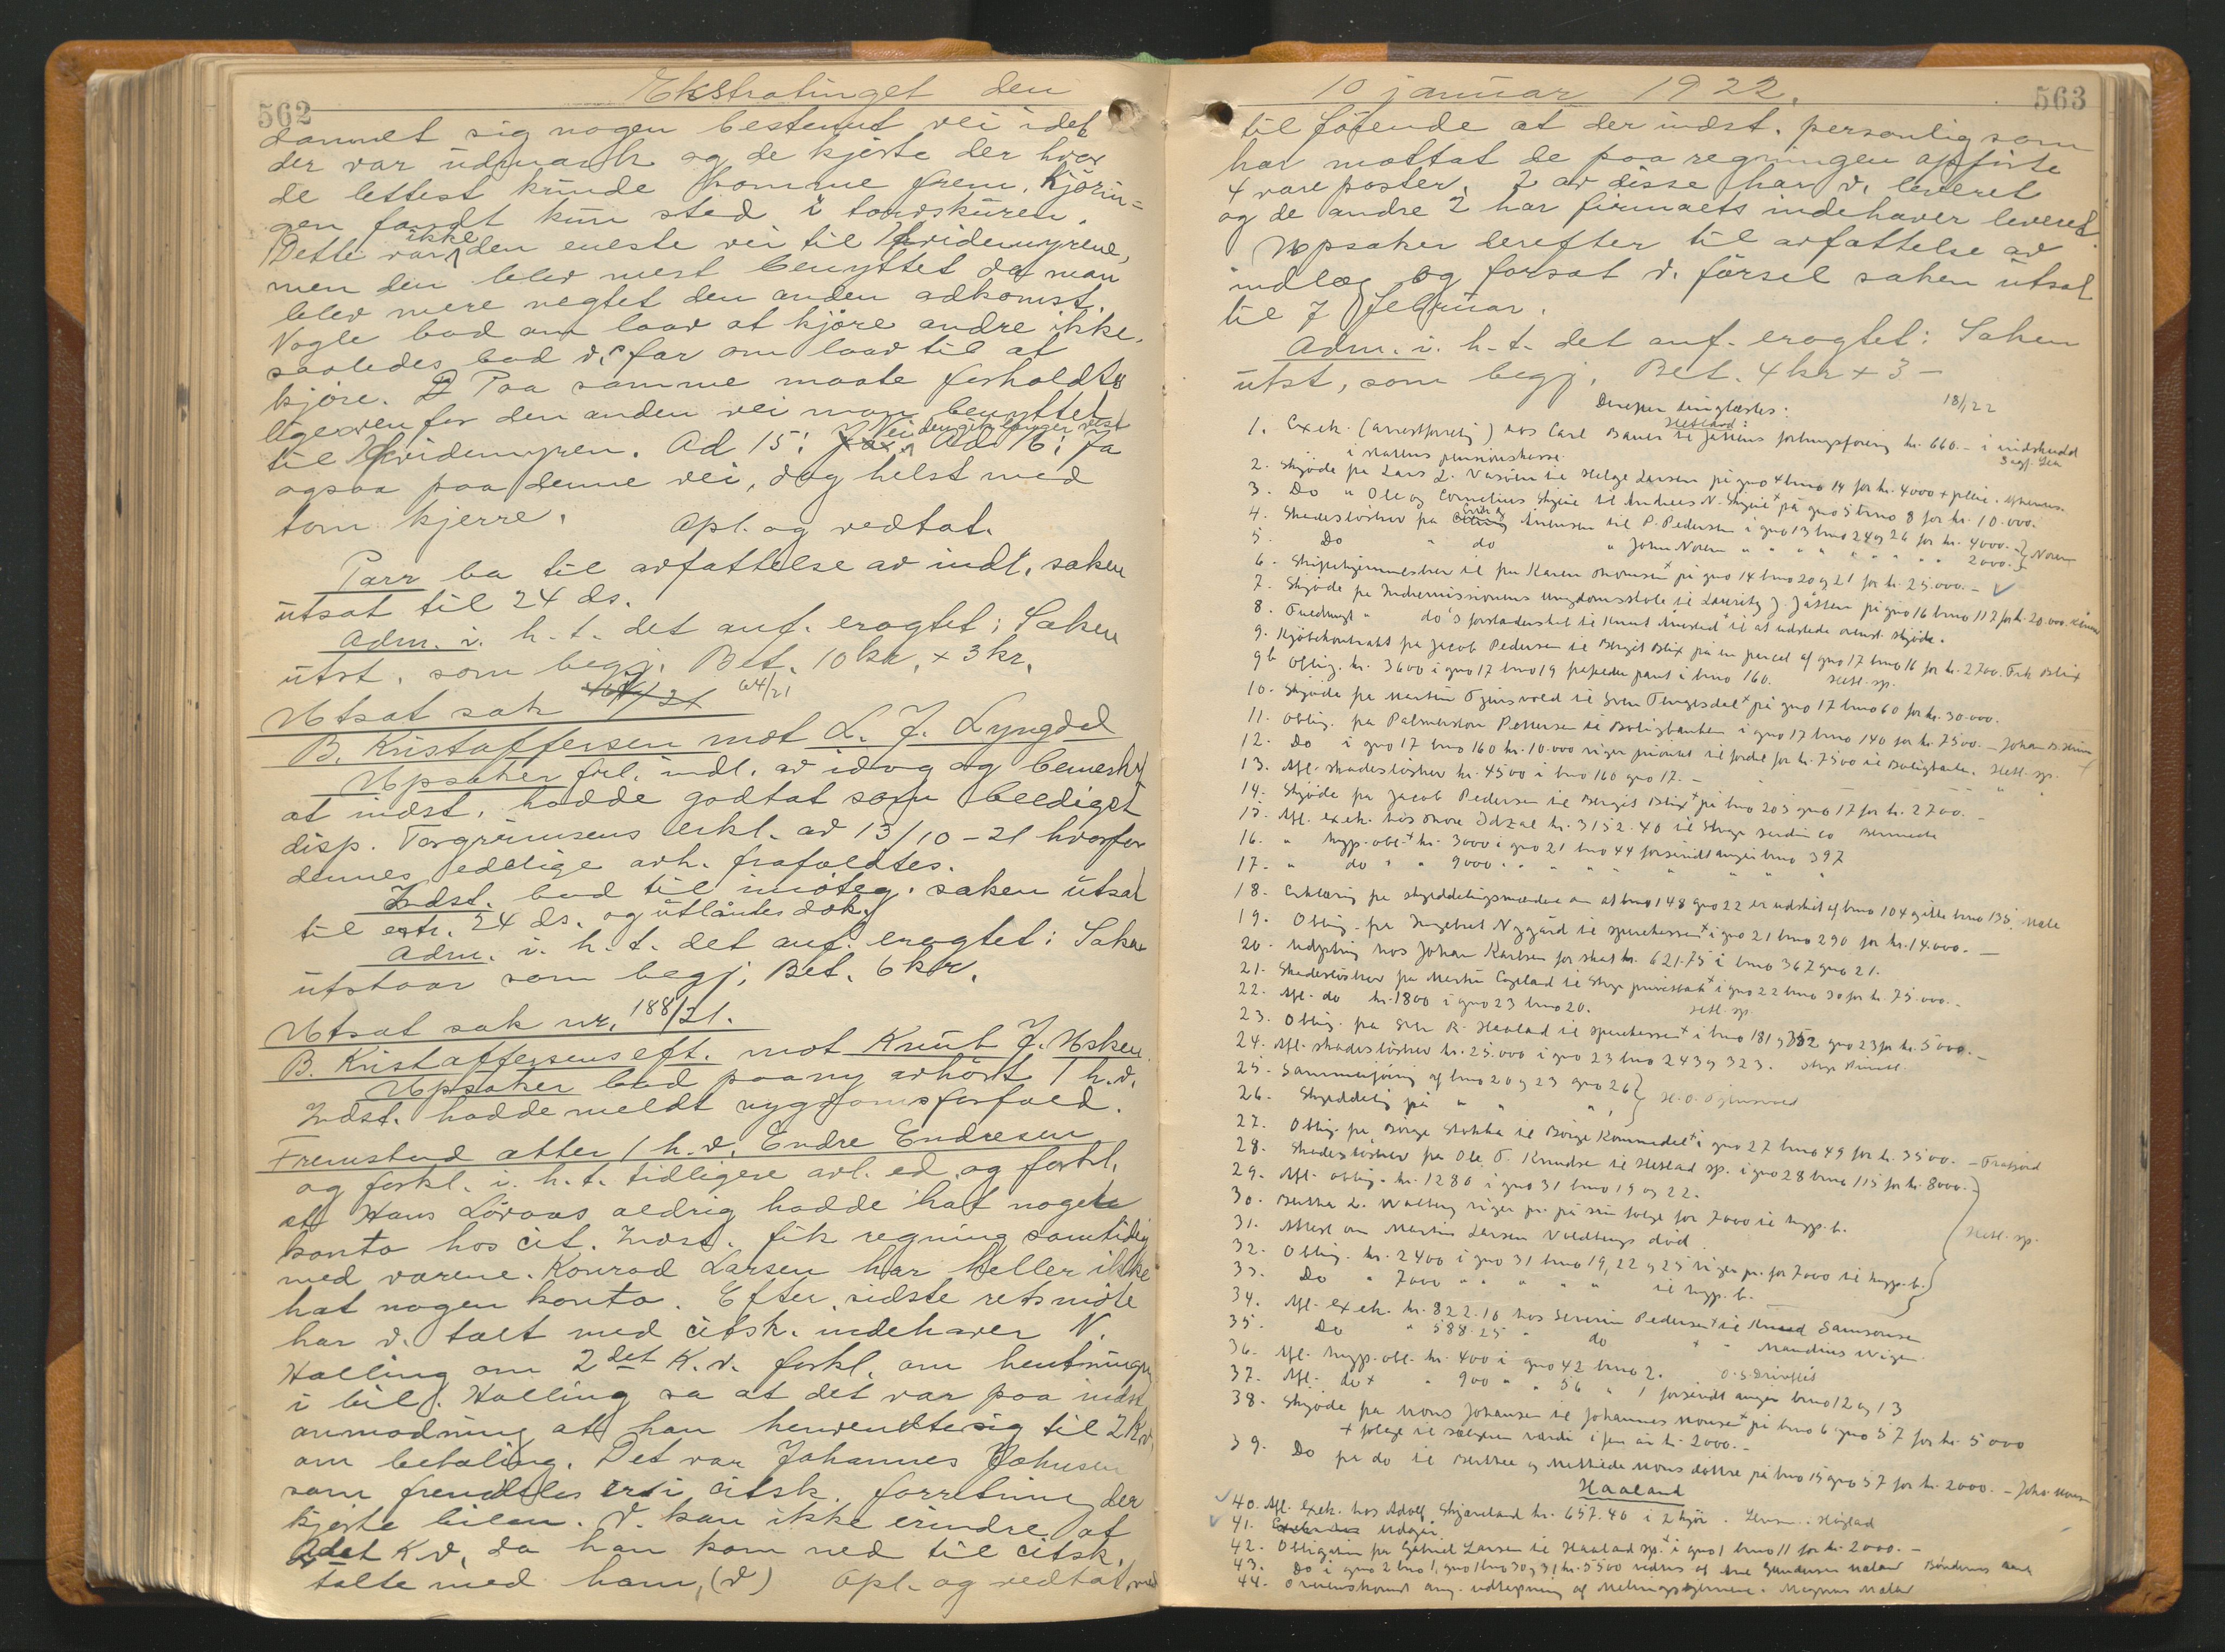 562
Ekstratinget den
dannet sig nogen bestemt vei idet
der var udmark og de kjørte der hvor
de lettest kunde komme frem. Kjørin=
gen fandt kun sted i tørvskuren.
Dette var ikke den eneste vei til Hvidemyrene,
men den blev mest benyttet da man
blev mere negtet den anden adkomst.
Nogle bad om laav at kjøre andre ikke.
saaledes bad v.s far om laav til at
kjøre. Paa samme maate forholdt
ligesven for den anden vei man benyttet
til Hvidemyren. Ad 15: Nei den gik længer vest Ad 16: Ja
ogsaa paa denne vei, dog helst med
tom kjerre. Opl. og vedtat.
Tarr ba til avfattelse av indl. saken
utsat til 24 ds.
Adm. i. h. t. det anf. eragtet: Saken
utst. som begj. Bet. 10 kr. + 3 kr.
Utsat sak 64/21
B. Kristoffersen mot L. J. Lyngdal
Upsaker frl. indl. av idag og bemerket
at indst. hadde godtat som beediget
disp. Torgrimsens erkl. av 13/10-21 hvorfor
dennes edelige avh. frafaldtes.
Indst. bad til imøteg. saken utsat
til extr. 24 ds. og utlåntes dok.
Adm. i. h. t. det anf. eragtet: Saken
utstaar som begj. Bet. 6 kr.
Utsat sak nr. 188/21.
B. Kristoffersens eft. mot Knut J. Usken.
Upsaker bad paany avhørt 1 h.v.
Indst. hadde meldt sygdomsforfald.
Fremstod atter 1 h.v. Endre Endresen
og forkl. i. h. t. tidligere avl. ed og forkl.
at Hans Lövaas aldrig hadde hat nogen
konto hos cit. Indst. fik regning samtidig
med varene. Konrad Larsen har heller ikke
hat nogen konto. Efter sidste retsmöte
har v. talt med citsk. indehaver N.
Halling om 2det K.v. forkl. om hentningen
i bil. Halling sa at det var paa indst.
anmodning at han henvendte sig til 2 K.v.
om betaling. Det var Johannes Johnsen
som fremdeles er i citsk. forretning der
kjørte bilen. V. kan ikke erindre at
2det K.v. da han kom ned til citsk.
talte med ham, (v) Opl. og vedtat
563
10 januar 1922.
til førende at der indst. personlig som
har mottat de paa regningen opførte
4 vareposter. 2 av disse har v. leveret
og de andre 2 har firmaets indehaver leveret.
Upsaker derefter til avfattelse av
indlæg og forsat v. førsel saken utsat
til 7 februar.
Adm. i. h. t. det anf. eragtet: Saken
utst, som begj. Bet. 4 kr + 3 -
Derefter tinglæstes: 18/1 22
Hetland:
1. Exek. (arrestforretn) hos Carl Bauer til Jåttens forbrugsforening kr. 660.- i indskudd
i statens pensionskasse.
2. Skjøde fra Lars L. Vasöen til Helge Larsen på gno 4 bno 14 for kr. 4000 + pleie.
3. Do " Ole og Cornelius Skjeie til Andreas N. Skjeie + på gno 5 bno 8 for kr. 10.000.
4. Skadesløsbrev fra Andersen til P. Pedersen i gno 13 bno 24 og 26 for kr. 4000.- } Noren
5. Do " do " John Noren " " " " " " " 2000.- }
6. Skiftehjemmelsbrev til fru Karen Thomsen + på gno 14 bno 20 og 21 for kr. 25.000.- ✓
7. Skjøde fra Indremissionens ungdomsskole til Lauritz J. Jåtten på gno 16 bno 112 for kr. 20.000.
8. Fuldmagt " do's forstanderskab til Knut til at udstede ovenst. skjøde.
9. Kjøbekontrakt fra Jacob Pedersen til Bergit Blix på en parcel af gno 17 bno 16 for kr. 2700. Frk Blix
9b Oblig. kr. 3600 i gno 17 bno 19 frafalder pant i bno 160. Hetl. sp.
10. Skjøde fra Martin Tjensvold til Sven Tengesdal + på gno 17 bno 60 for kr. 30.000.
11. Oblig. fra Palmerston Pettersen til Boligbanken i gno 17 bno 140 for kr. 7500.-
12. Do i gno 17 bno 160 kr. 10.000 viger prioritet til fordel for kr. 7500 til Boligbank. Hetl. sp.
13. Afl. skadesløsbrev kr. 4500 i bno 160 gno 17.-
14. Skjøde fra Jacob Pedersen til Bergit Blix + på bno 203 gno 17 for kr. 2700.-
15. Afl. exek. hos Thore Idzal kr. 3152.40 til
16. " hyp. obl. + kr. 3000 i gno 21 bno 44 forsåvidt angår bno 397
17. " do " " 9000 " " " " " " "
18. Erklæring fra skyddelingsmændene om at bno 148 gno 22 er udskilt af bno 104 og ikke bno 135.
19. Oblig. fra Ingebret Nygård til sparekassen + i gno 21 bno 290 for kr. 14.000.-
20. Udpantning hos Johan Karlsen for skat kr. 621.75 i bno 367 gno 21.
21. Skadesløsbrev fra Martin Copeland til privatbank + i gno 22 bno 30 for kr. 75.000.-
22. Afl. do kr. 1800 i gno 23 bno 20. Hetl. sp.
23. Oblig. fra R. Haaland til sparekassen + i bno 181 og 352 gno 23 for kr. 5000.-
24. Afl. skadesløsbrev kr. 25.000 i gno 23 bno 243 og 323.
25. Sammenføining af bno 20 og 23 gno 26 }
26. Skylddeling på " " " } H. O. Tjensvold
27. Oblig. fra Börge Stokka til Börge Kommedal + i gno 27 bno 49 for kr. 3500.- Trafjord
28. Skadesløsbrev fra Ole T. Knudsen til Hetland sp. i gno 28 bno 115 for kr. 8000.-
29. Afl. oblig. kr. 1280 i gno 31 bno 19 og 22.
30. Berthe L. Wølberg viger pr. på sin folge for 7000 til hyp. b.
31. Attest om Martin Larsen Voldbergs död
32. Oblig. kr. 2400 i gno 31 bno 19, 22 og 25 viger pr. for 7000 til hyp. b.
33. Do " 7000 " " " " " til hyp. b. } Hetl. sp.
34. Afl. exek. kr. 822.16 hos Severin Pedersen + til Samsonsen
35. Do " 588.25 " do + " Mandius Wigen
36. Afl. hyp. obl. kr. 400 i gno 42 bno 2.
37. Afl. do + " 900 " " 56 " 1 forsåvidt angår bno 12 og 13
38. Skjøde fra Mons Johansen til Johannes Monsen + på bno 6 gno 57 for kr. 5000
+ folge til sælgeren værdi i fem år kr. 2000.-
39. Do fra do til Berthe og Mathilde Monsdöttre på bno 15 gno 57 for kr. 2000. - Johs. Monsen
Haaland
40. Afl. exek. hos Adolf Skjæveland kr. 657.40 i 2 kjör.
41. Udgår.
42. Obligation fra Gabriel Larsen til Haaland sp. + i gno 1 bno 11 for kr. 2000.-
43. Do i gno 2 bno 1, gno 1 bno 30 og 31 kr. 5500 vedtas af Gundersen Malde
44. Overenskomst ang. udtapning af Melingstjernene. Magnus Malde